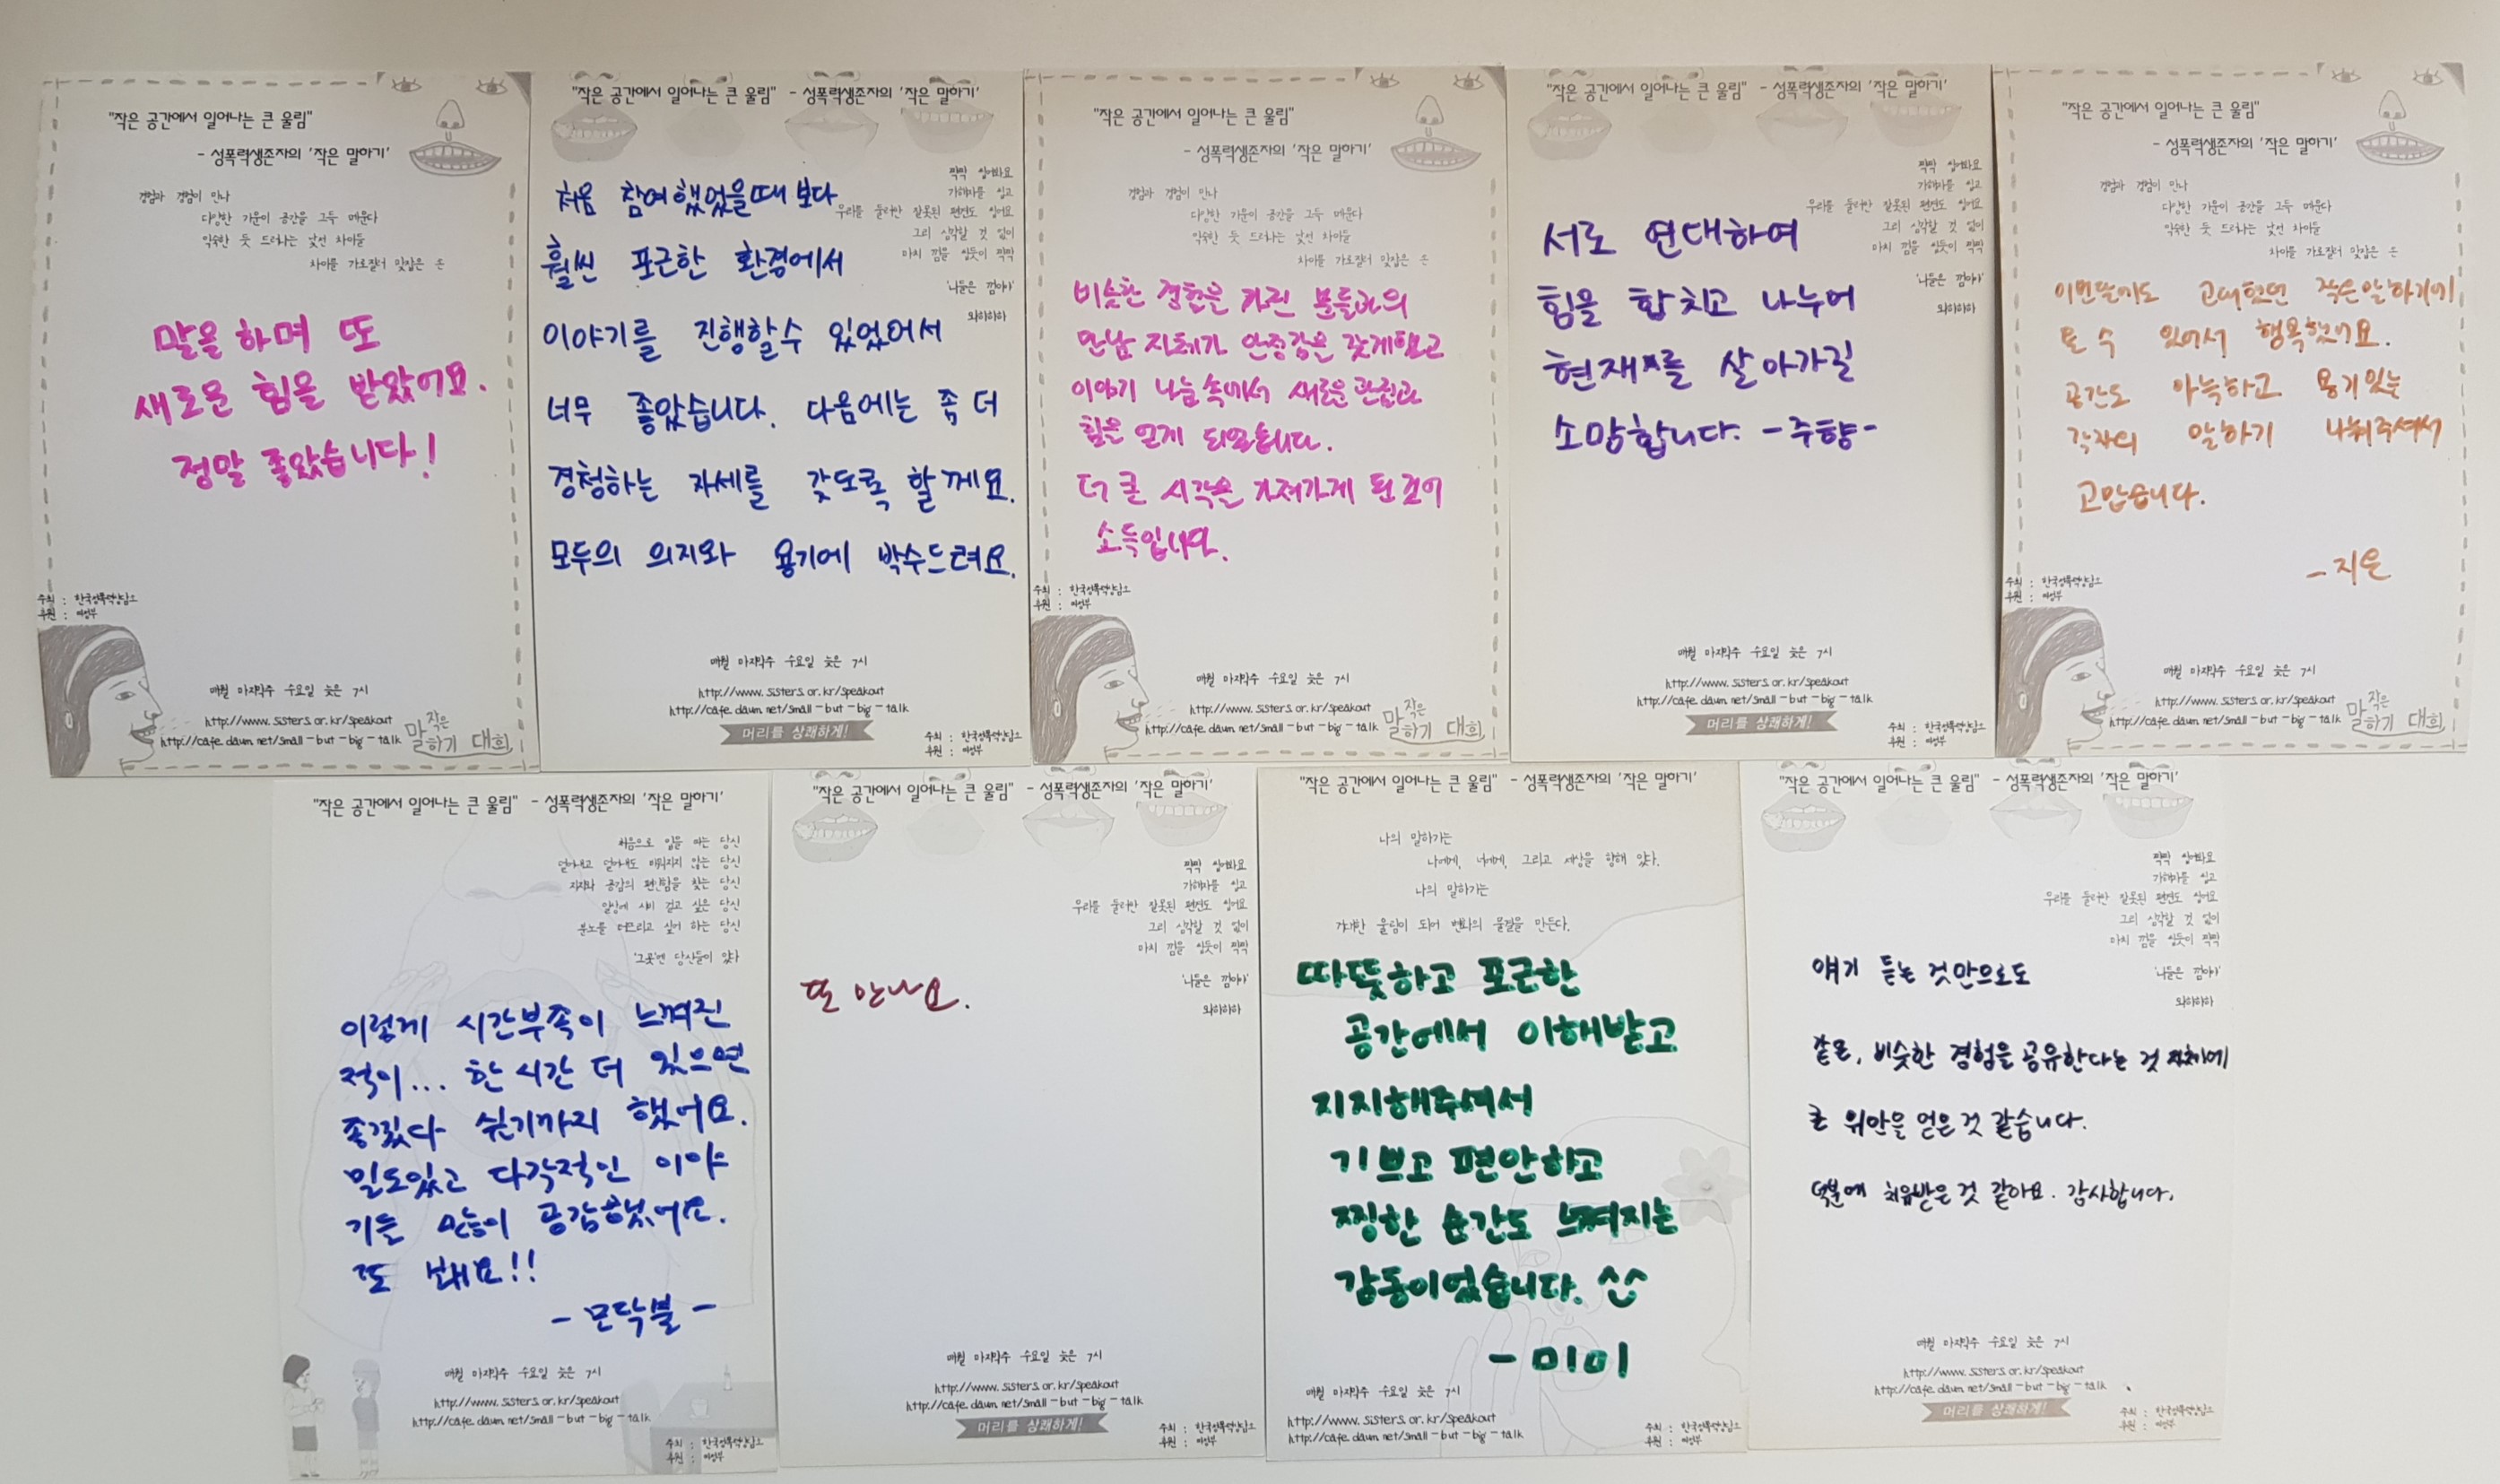 "작은 공간에서 일어나는 큰 울림"
- 성폭력생존자의 '작은 말하기'
경험과 경험이 만나
다양한 기운이 공간을 그득 메운다
익숙한 듯 드러나는 낯선 차이들
차이를 가로질러 맞잡은 손
말을하며 또
새로운 힘을 받았어요.
정말 좋았습니다!
주최 : 한국성폭력상담소
후원 : 여성부
매월 마지막주 수요일 늦은 7시
http://www.sisters.or.kr/speakout
http://cafe.daum.net/small-but-big-talk
작은
말하기 대회
"작은 공간에서 일어나는 큰 울림" - 성폭력생존자의 '작은 말하기'
짝짝 씹어봐요
가해자를 씹고
우리를 둘러싼 잘못된 편견도 씹어요
그리 심각할 것 없이
마치 껌을 씹듯이 짝짝
'니들은 껌이야'
와하하하
처음 참여했었을때 보다
훨씬 포근한 환경에서
이야기를 진행할수 있었어서
너무 좋았습니다. 다음에는 좀 더
경청하는 자세를 갖도록 할께요.
모두의 의지와 용기에 박수드려요.
매월 마지막주 수요일 늦은 7시
http://www.sisters.or.kr/speakout
http://cafe.daum.net/small-but-big-talk
머리를 상쾌하게!
주최 : 한국성폭력상담소
후원 : 여성부
"작은 공간에서 일어나는 큰 울림"
- 성폭력생존자의 '작은 말하기'
경험과 경험이 만나
다양한 기운이 공간을 그득 메운다
익숙한 듯 드러나는 낯선 차이들
차이를 가로질러 맞잡은 손
비슷한 경험을 가진 분들과의
만남 자체가 안정감을 갖게했고
이야기 나눔 속에서 새로운 관점과
힘을 얻게 되었습니다.
더 큰 시각을 가져가게 된 것이
소득입니다.
주최 : 한국성폭력상담소
후원 : 여성부
매월 마지막주 수요일 늦은 7시
http://www.sisters.or.kr/speakout
http://cafe.daum.net/small-but-big-talk
작은
말하기 대회
"작은 공간에서 일어나는 큰 울림" - 성폭력생존자의 '작은 말하기'
짝짝 씹어봐요
가해자를 씹고
우리를 둘러싼 잘못된 편견도 씹어요
그리 심각할 것 없이
마치 껌을 씹듯이 짝짝
'니들은 껌이야'
와하하하
서로 연대하여
힘을 합치고 나누어
현재를 살아가길
소망합니다. -주향-
매월 마지막주 수요일 늦은 7시
http://www.sisters.or.kr/speakout
http://cafe.daum.net/small-but-big-talk
머리를 상쾌하게!
주최 : 한국성폭력상담소
후원 : 여성부
"작은 공간에서 일어나는 큰 울림"
- 성폭력생존자의 '작은 말하기'
경험과 경험이 만나
다양한 기운이 공간을 그득 메운다
익숙한 듯 드러나는 낯선 차이들
차이를 가로질러 맞잡은 손
이번달에도 고대했던 작은말하기에
올 수 있어서 행복했어요.
공간도 아늑하고 용기있는
각자의 말하기 나눠주셔서
고맙습니다.
-지은
주최 : 한국성폭력상담소
후원 : 여성부
매월 마지막주 수요일 늦은 7시
http://www.sisters.or.kr/speakout
http://cafe.daum.net/small-but-big-talk
작은
말하기 대회
"작은 공간에서 일어나는 큰 울림" - 성폭력생존자의 '작은 말하기'
처음으로 입을 떼는 당신
덜어내고 덜어내도 비워지지 않는 당신
지지와 공감의 편안함을 찾는 당신
일상에 시비 걸고 싶은 당신
분노를 터뜨리고 싶어 하는 당신
'그곳'엔 당신들이 있다
이렇게 시간부족이 느껴진
적이... 한 시간 더 있으면
좋겠다 싶기까지 했어요.
밀도있고 다각적인 이야
기들 많이 공감했어요.
또 봬요!!
-모닥불-
매월 마지막주 수요일 늦은 7시
http://www.sisters.or.kr/speakout
http://cafe.daum.net/small-but-big-talk
주최 : 한국성폭력상담소
후원 : 여성부
"작은 공간에서 일어나는 큰 울림" - 성폭력생존자의 '작은 말하기'
짝짝 씹어봐요
가해자를 씹고
우리를 둘러싼 잘못된 편견도 씹어요
그리 심각할 것 없이
마치 껌을 씹듯이 짝짝
'니들은 껌이야'
와하하하
또 만나요.
매월 마지막주 수요일 늦은 7시
http://www.sisters.or.kr/speakout
http://cafe.daum.net/small-but-big-talk
머리를 상쾌하게!
주최 : 한국성폭력상담소
후원 : 여성부
"작은 공간에서 일어나는 큰 울림" - 성폭력생존자의 '작은 말하기'
나의 말하기는
나에게, 너에게, 그리고 세상을 향해 있다.
나의 말하기는
거대한 울림이 되어 변화의 물결을 만든다.
따뜻하고 포근한
공간에서 이해받고
지지해주셔서
기쁘고 편안하고
찡한 순간도 느껴지는
감동이었습니다. ^^
-미이
매월 마지막주 수요일 늦은 7시
http://www.sisters.or.kr/speakout
http://cafe.daum.net/small-but-big-talk
주최 : 한국성폭력상담소
후원 : 여성부
"작은 공간에서 일어나는 큰 울림" - 성폭력생존자의 '작은 말하기'
짝짝 씹어봐요
가해자를 씹고
우리를 둘러싼 잘못된 편견도 씹어요
그리 심각할 것 없이
마치 껌을 씹듯이 짝짝
'니들은 껌이야'
와하하하
얘기 듣는 것만으로도
같은, 비슷한 경험을 공유한다는 것 자체에
큰 위안을 얻은 것 같습니다.
덕분에 치유받은 것 같아요. 감사합니다.
매월 마지막주 수요일 늦은 7시
http://www.sisters.or.kr/speakout
http://cafe.daum.net/small-but-big-talk
머리를 상쾌하게!
주최 : 한국성폭력상담소
후원 : 여성부